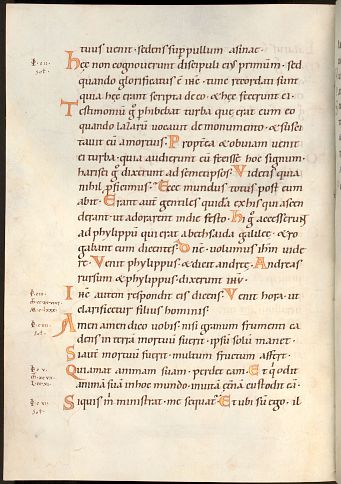 tuus uenit · sedens sup pullum asinae ·
hęc non cognouerunt discipuli eiꝰ primum · sed
quando glorificatus ē ihc̄ · tunc recordati sunt
quia hęc erant scripta de eo · & hęc fecerunt ei ·
Testimoniū g̊ phibebat turba que erat cum eo
quando lazarū uocauit de monumento · & susci
tauit eū a mortuis · Propterea & obuiam uenit
ei turba · quia audierunt eū fecisse hoc signum ·
harisei g̊ dixerunt ad semetipsos · Videtis quia
nihil pficimus · Ecce mundus totus post eum
abit · Erant aut̄ gentiles quidā ex his qui ascen
derant ut adorarent in die festo · hi g̊ accesserunt
ad phylippū qui erat a bethsaida galileę · & ro
gabant eum dicentes · Dn̄e · uolumus ihm̄ uide
re · Venit phylippus & dicit andreę · Andreas
rursum & phylippus dixerunt ihū ·
Ihc̄ autem respondit eis dicens · Venit hora · ut
clarificetur filius hominis ·
Amen amen dico uobis · nisi granum frumenti ca
dens in terrā mortuū fuerit · ipsū solū manet ·
Si aut̄ mortuū fuerit · multum fructum affert ·
Qui amat animam suam · perdet eam · Et q̊ odit
animā suā in hoc mundo · in uitā ęt̄nā custodit eā ·
Si quis m̄ ministrat · me sequat᷑ · Et ubi sum ego · il